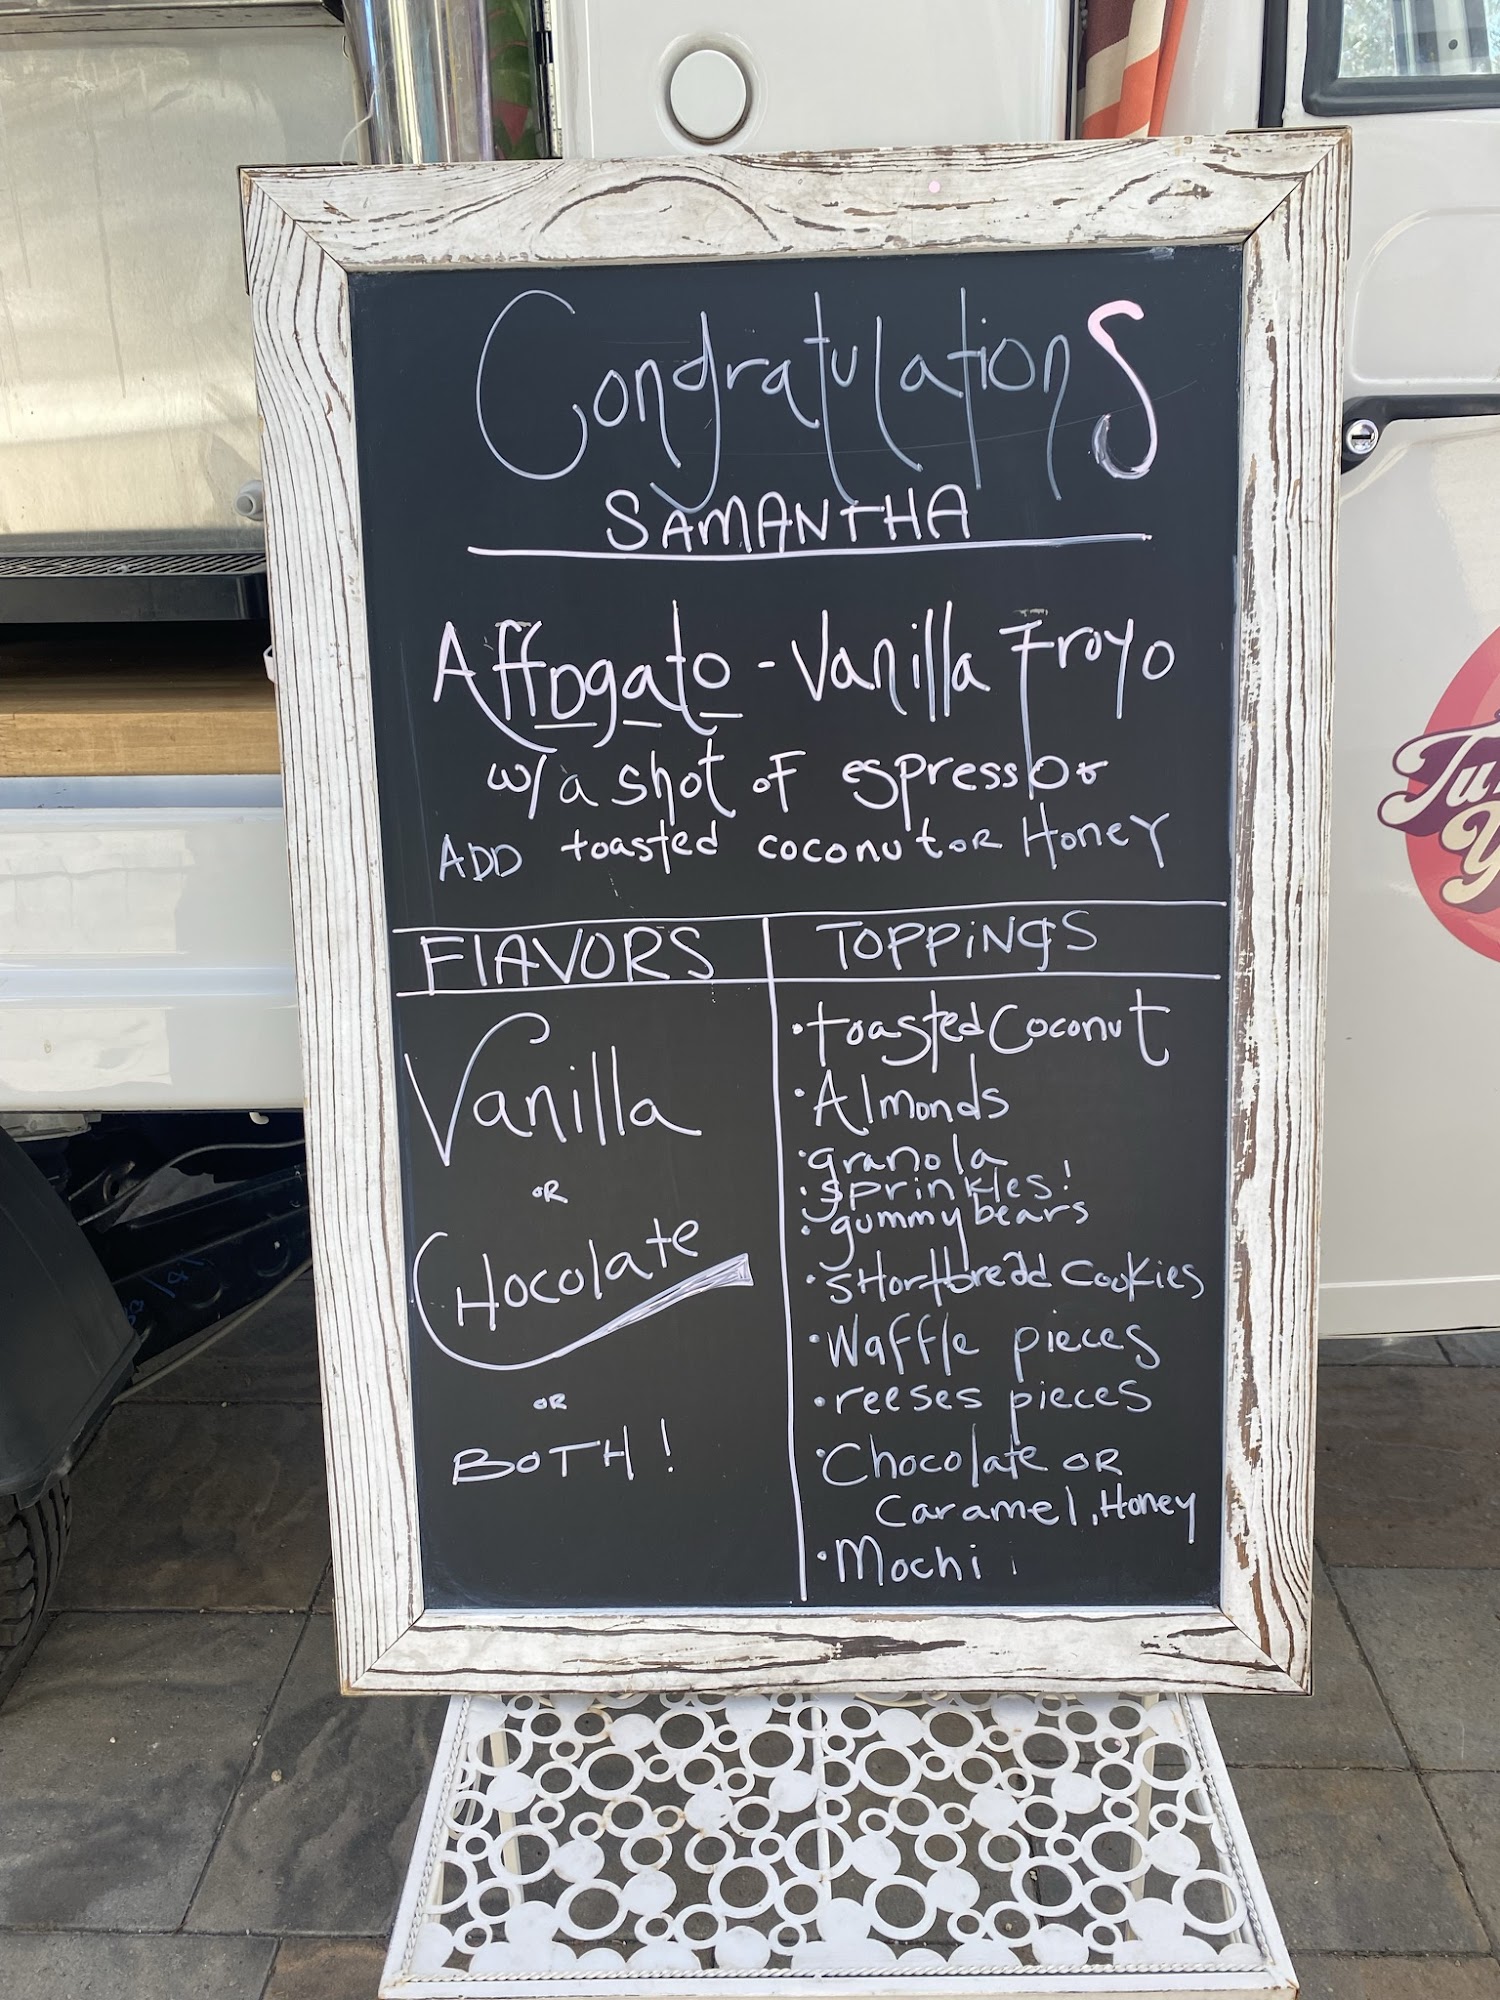 Congratulations
SAMANTHA
Affogato - Vanilla Froyo
w/a shot of espresso or
ADD toasted coconut or Honey
FlAVORS
Vanilla
OR
CHocolate
OR
BOTH!
TOPPiNgS
·toasted Coconut
·Almonds
·granola
·sprinkles!
·gummy bears
·sHortbread Cookies
·Waffle pieces
·reeses pieces
·Chocolate OR
Caramel, Honey
·Mochi